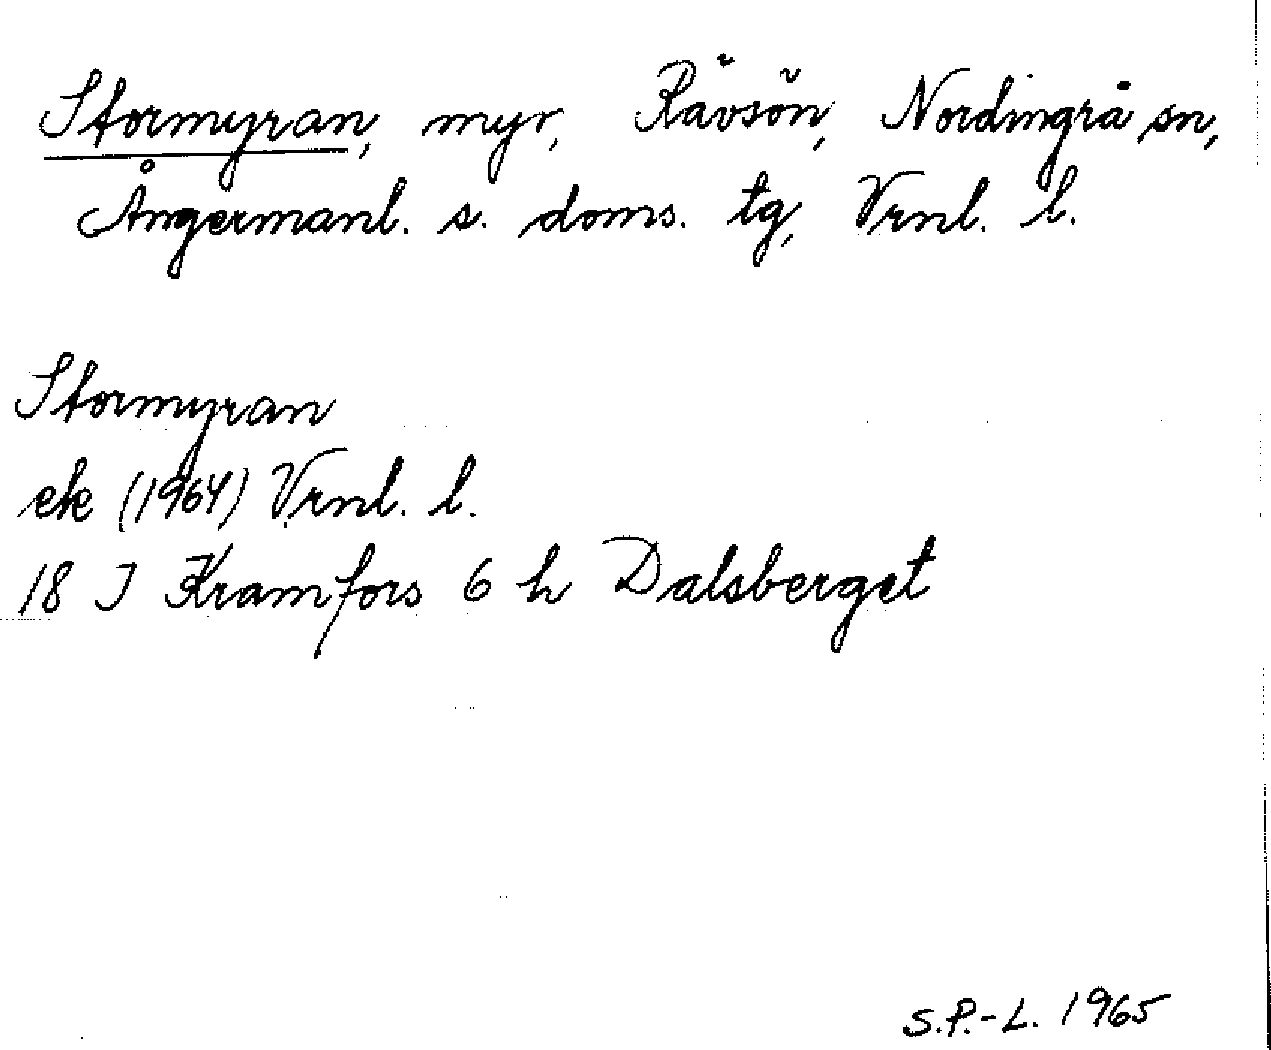 Stormyran, myr, Rävsön, Nordingrå sn,
Ångermanl. s. doms. tg, Vrnl. l.
Stormyran
ek (1964) Vrnl. l.
18 I Kramfors 6 h Dalsberget
S.P.-L. 1965